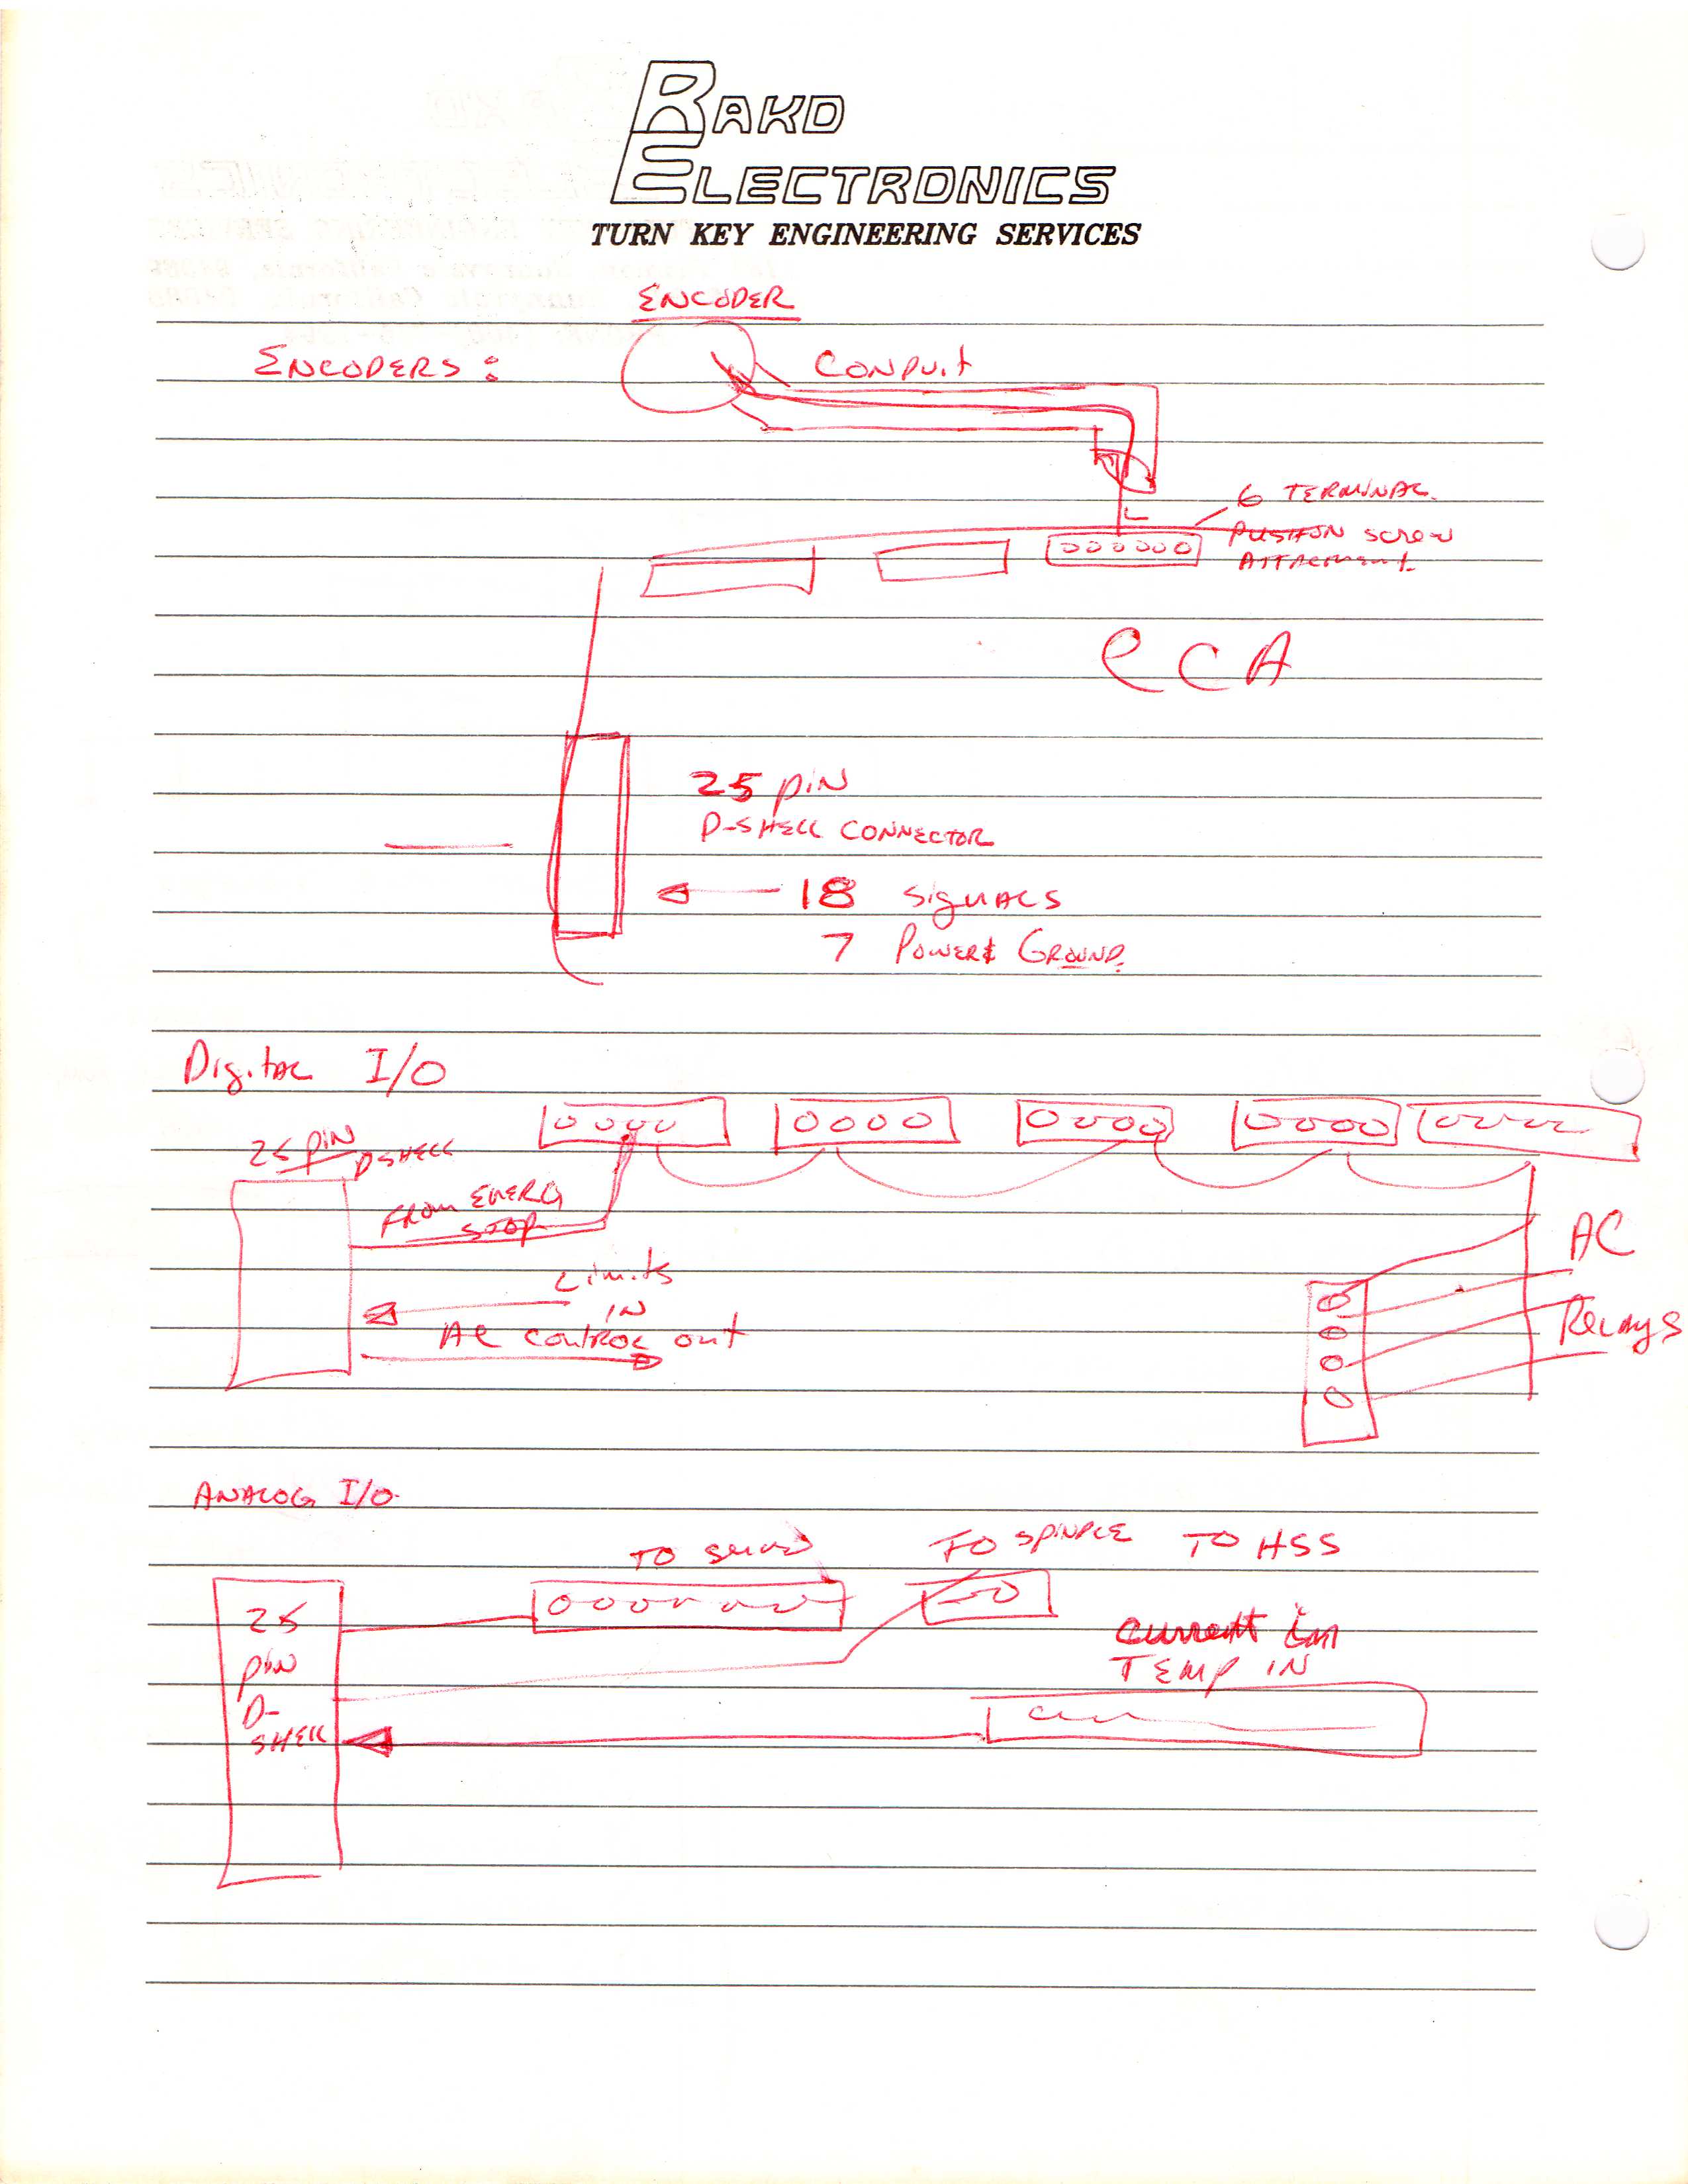 RAKO
ELECTRONICS
TURN KEY ENGINEERING SERVICES
ENCODER
ENCODERS:
CONDUIT
6 TERMINAL
PUSHON SCREW
ATTACMENT
PCA
25 PIN
D-SHELL CONNECTOR
18 SIGNALS
7 POWER & GROUND
Digital I/O
25 PIN
DSHELL
FROM EMERG
STOP
Limits
IN
AC CONTROL out
AC
Relays
ANALOG I/O
TO SERVO
TO SPINDLE
TO HSS
25
PIN
D-
SHELL
Current in
TEMP IN